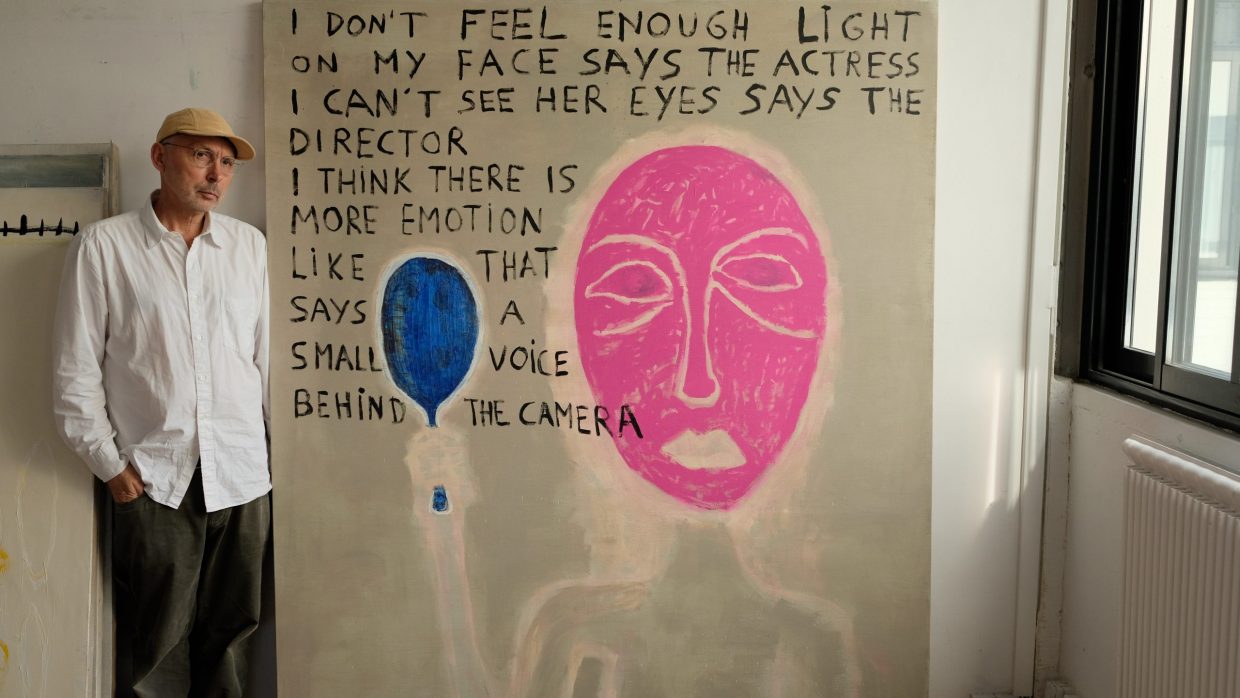 I DON'T FEEL ENOUGH LiGHT
ON MY FACE SAYS THE ACTRESS
I CAN'T SEE HER EYES SAYS THE
DIRECTOR
I THINK THERE IS
MORE EMOTION
LiKE THAT
SAYS A
SMALL VOiCE
BEHIND THE CAMERA